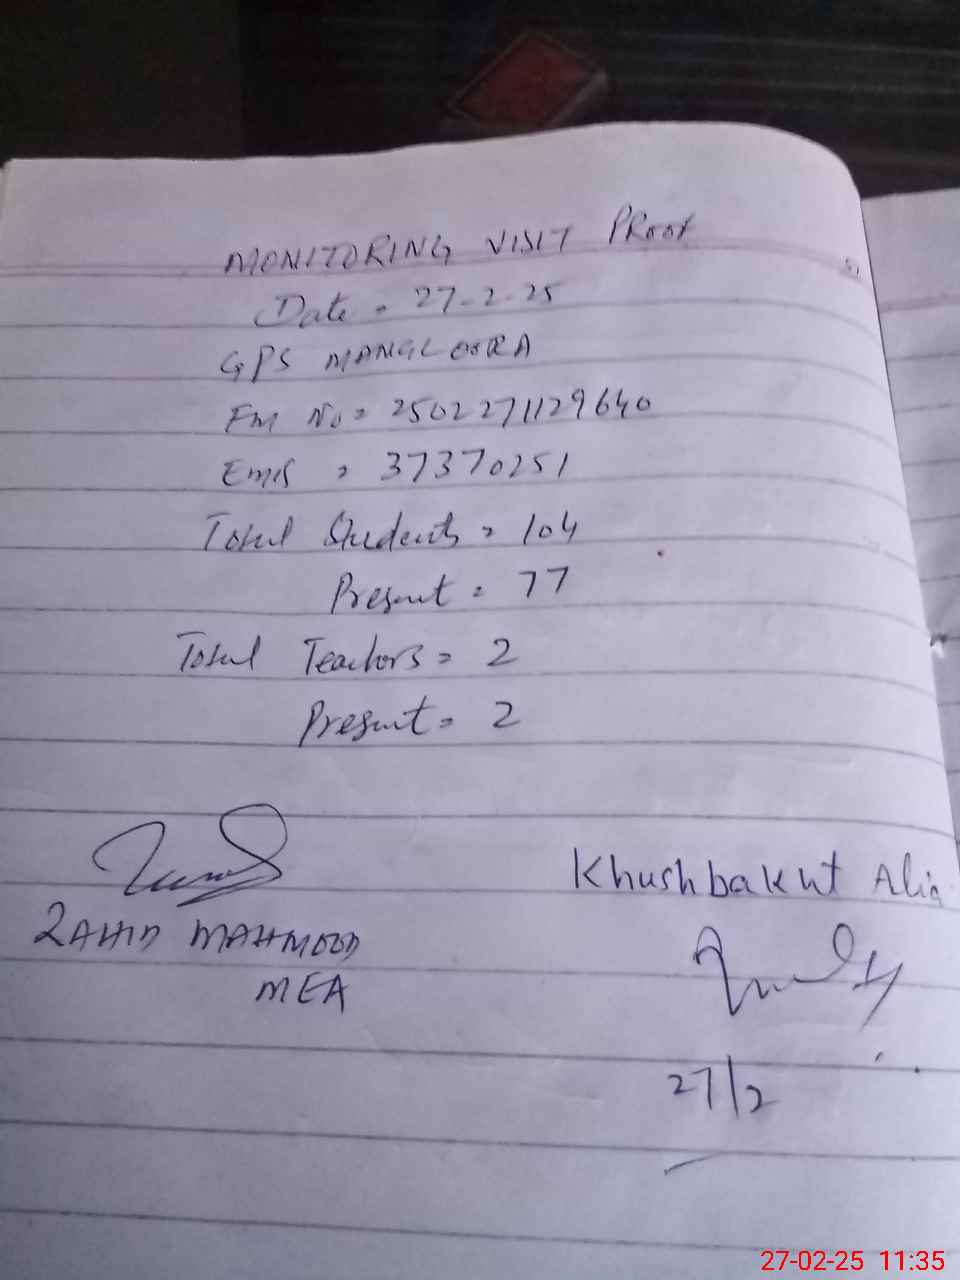 MONITORING VISIT PROOF
Date = 27-2-25
GPS MANGLOORA
FM No = 2502271129640
Emis = 37370251
Total Students = 104
Present = 77
Total Teachers = 2
Present = 2
ZAHID MAHMOOD
MEA
Khushbakht Alia
27/2
27-02-25 11:35